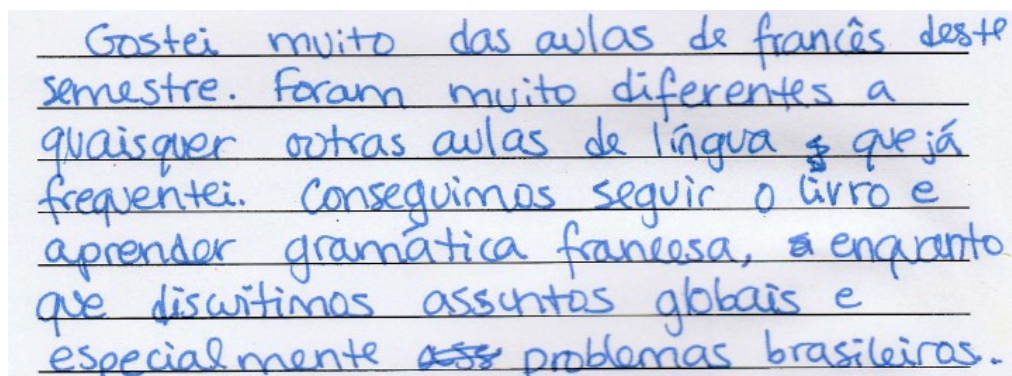 Gostei muito das aulas de francês deste
semestre. Foram muito diferentes a
quaisquer outras aulas de língua que já
frequentei. Conseguimos seguir o livro e
aprender gramática francesa, enquanto
que discuitimos assuntos globais e
especialmente problemas brasileiros.